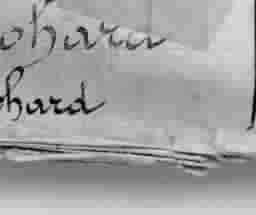 ohara
ohard